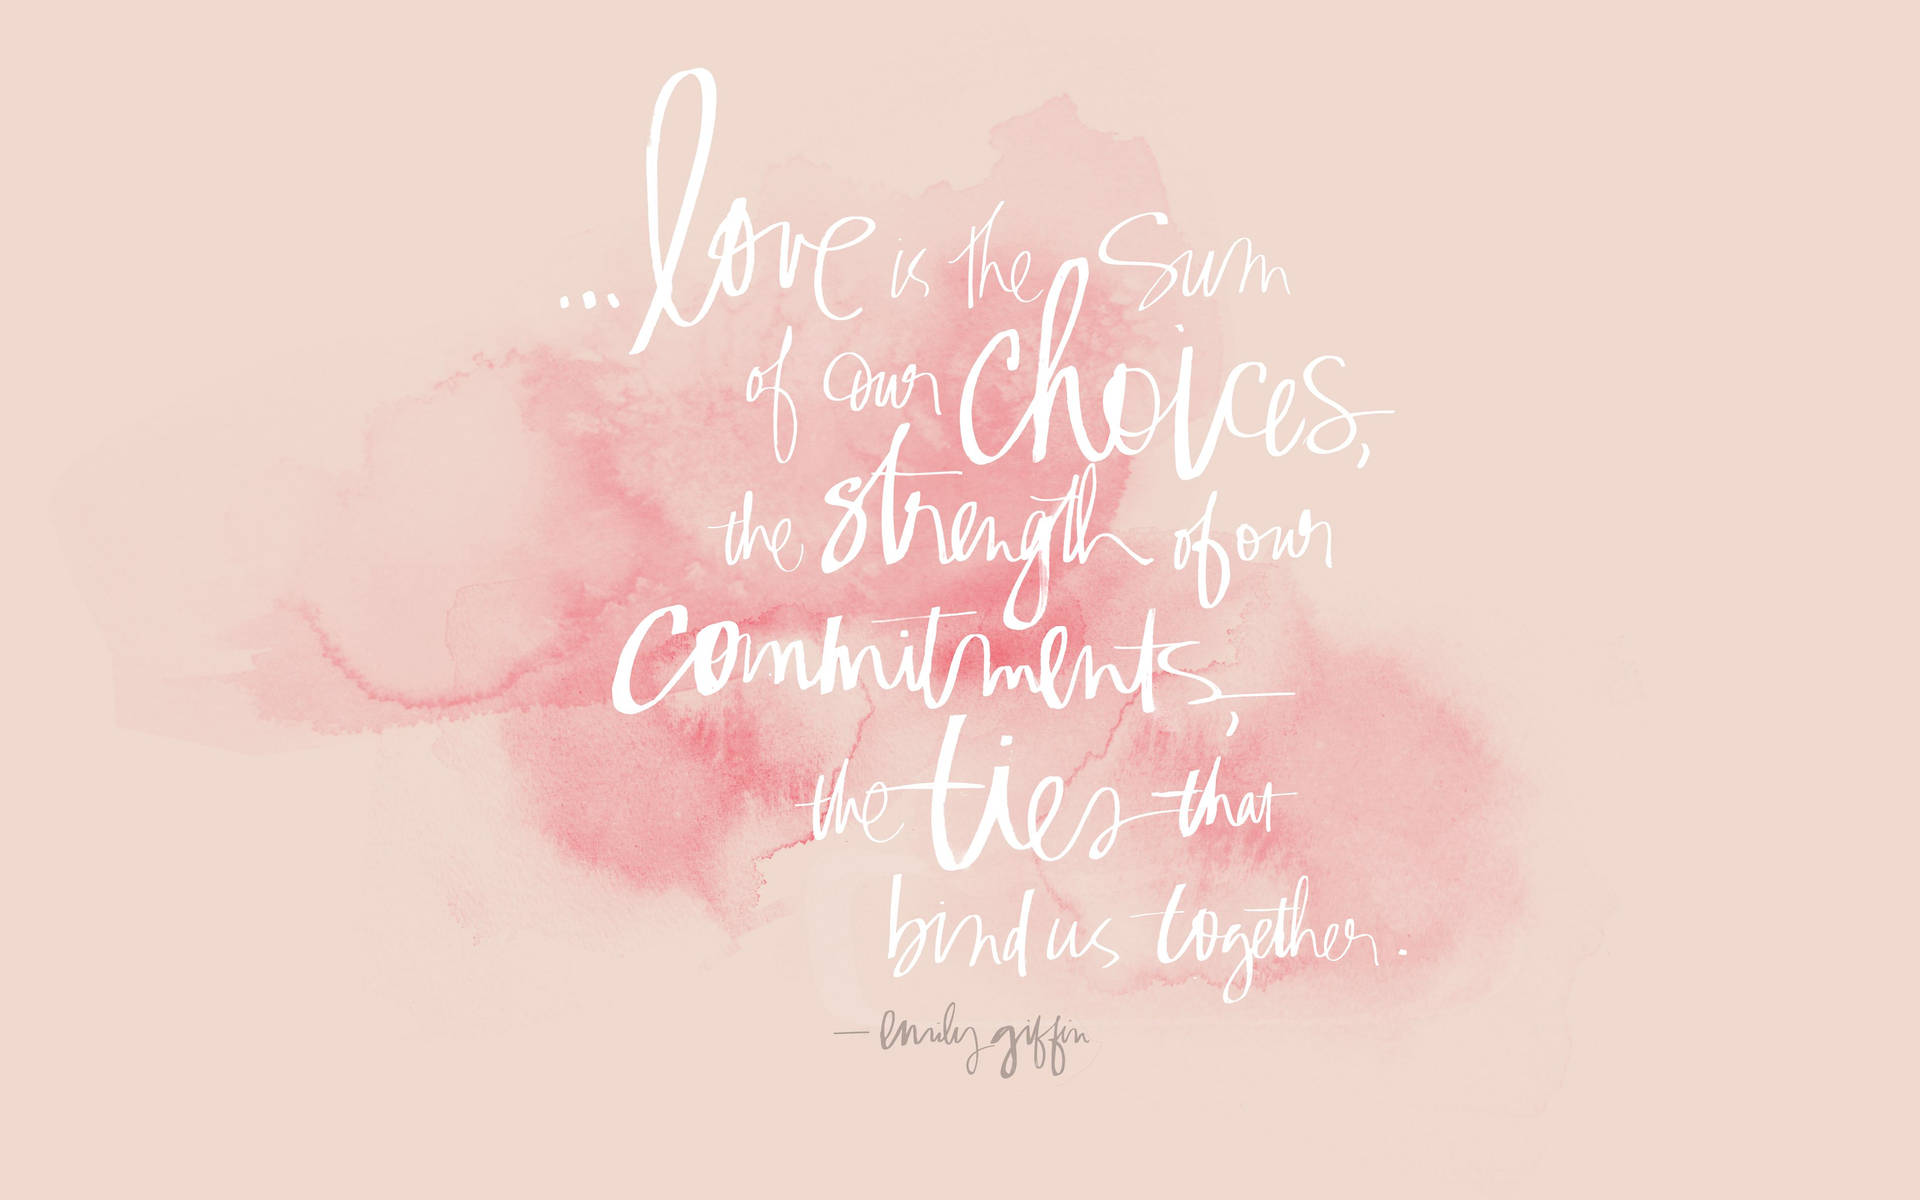 ...love is the Sum
of our choices,
the strength of our
commitments,
the ties that
bind us together.
— emily giffin